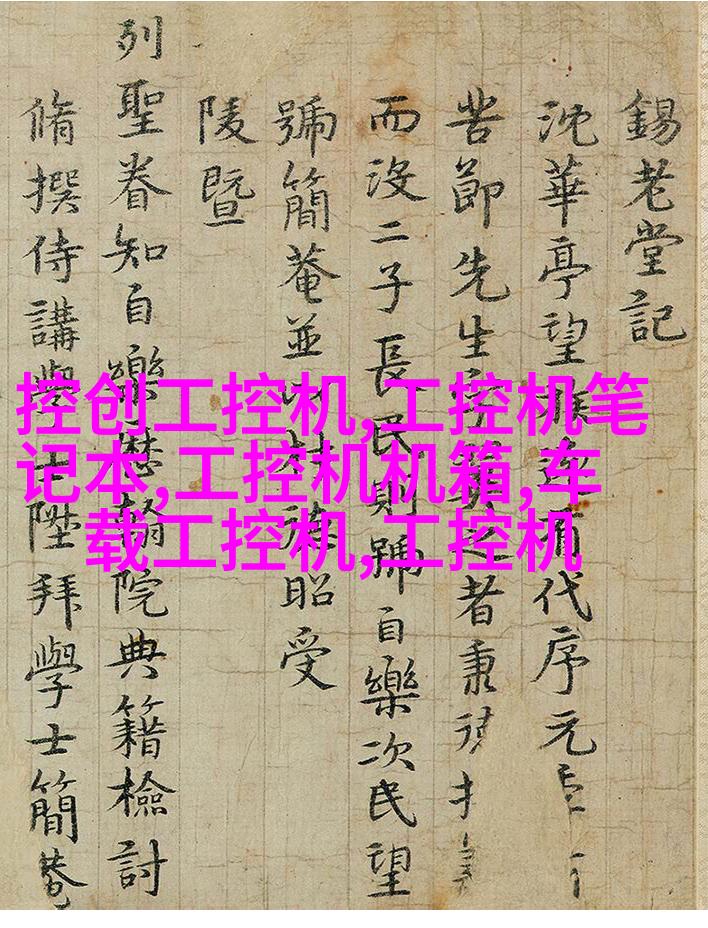 錫老堂記
沈華亭望族連有代序元
苦節先生之者秉
而沒二子長民則號自樂次民望
號簡菴並以昭受
陵暨
列聖眷知自樂翰院典籍檢討
脩撰侍講學士陞拜學士簡菴
控创工控机,工控机笔
记本,工控机机箱,车
载工控机,工控机